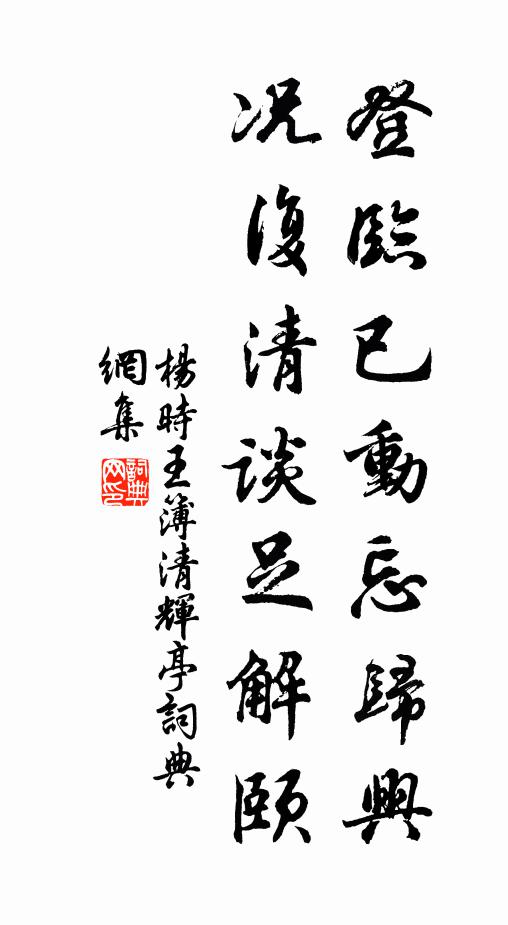 登臨已動忘歸興
况復清談足解頤
楊時王簿清輝亭詞典
網集
詞典
网印